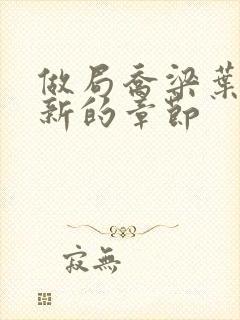 做局喬梁葉
新的章節
寂無